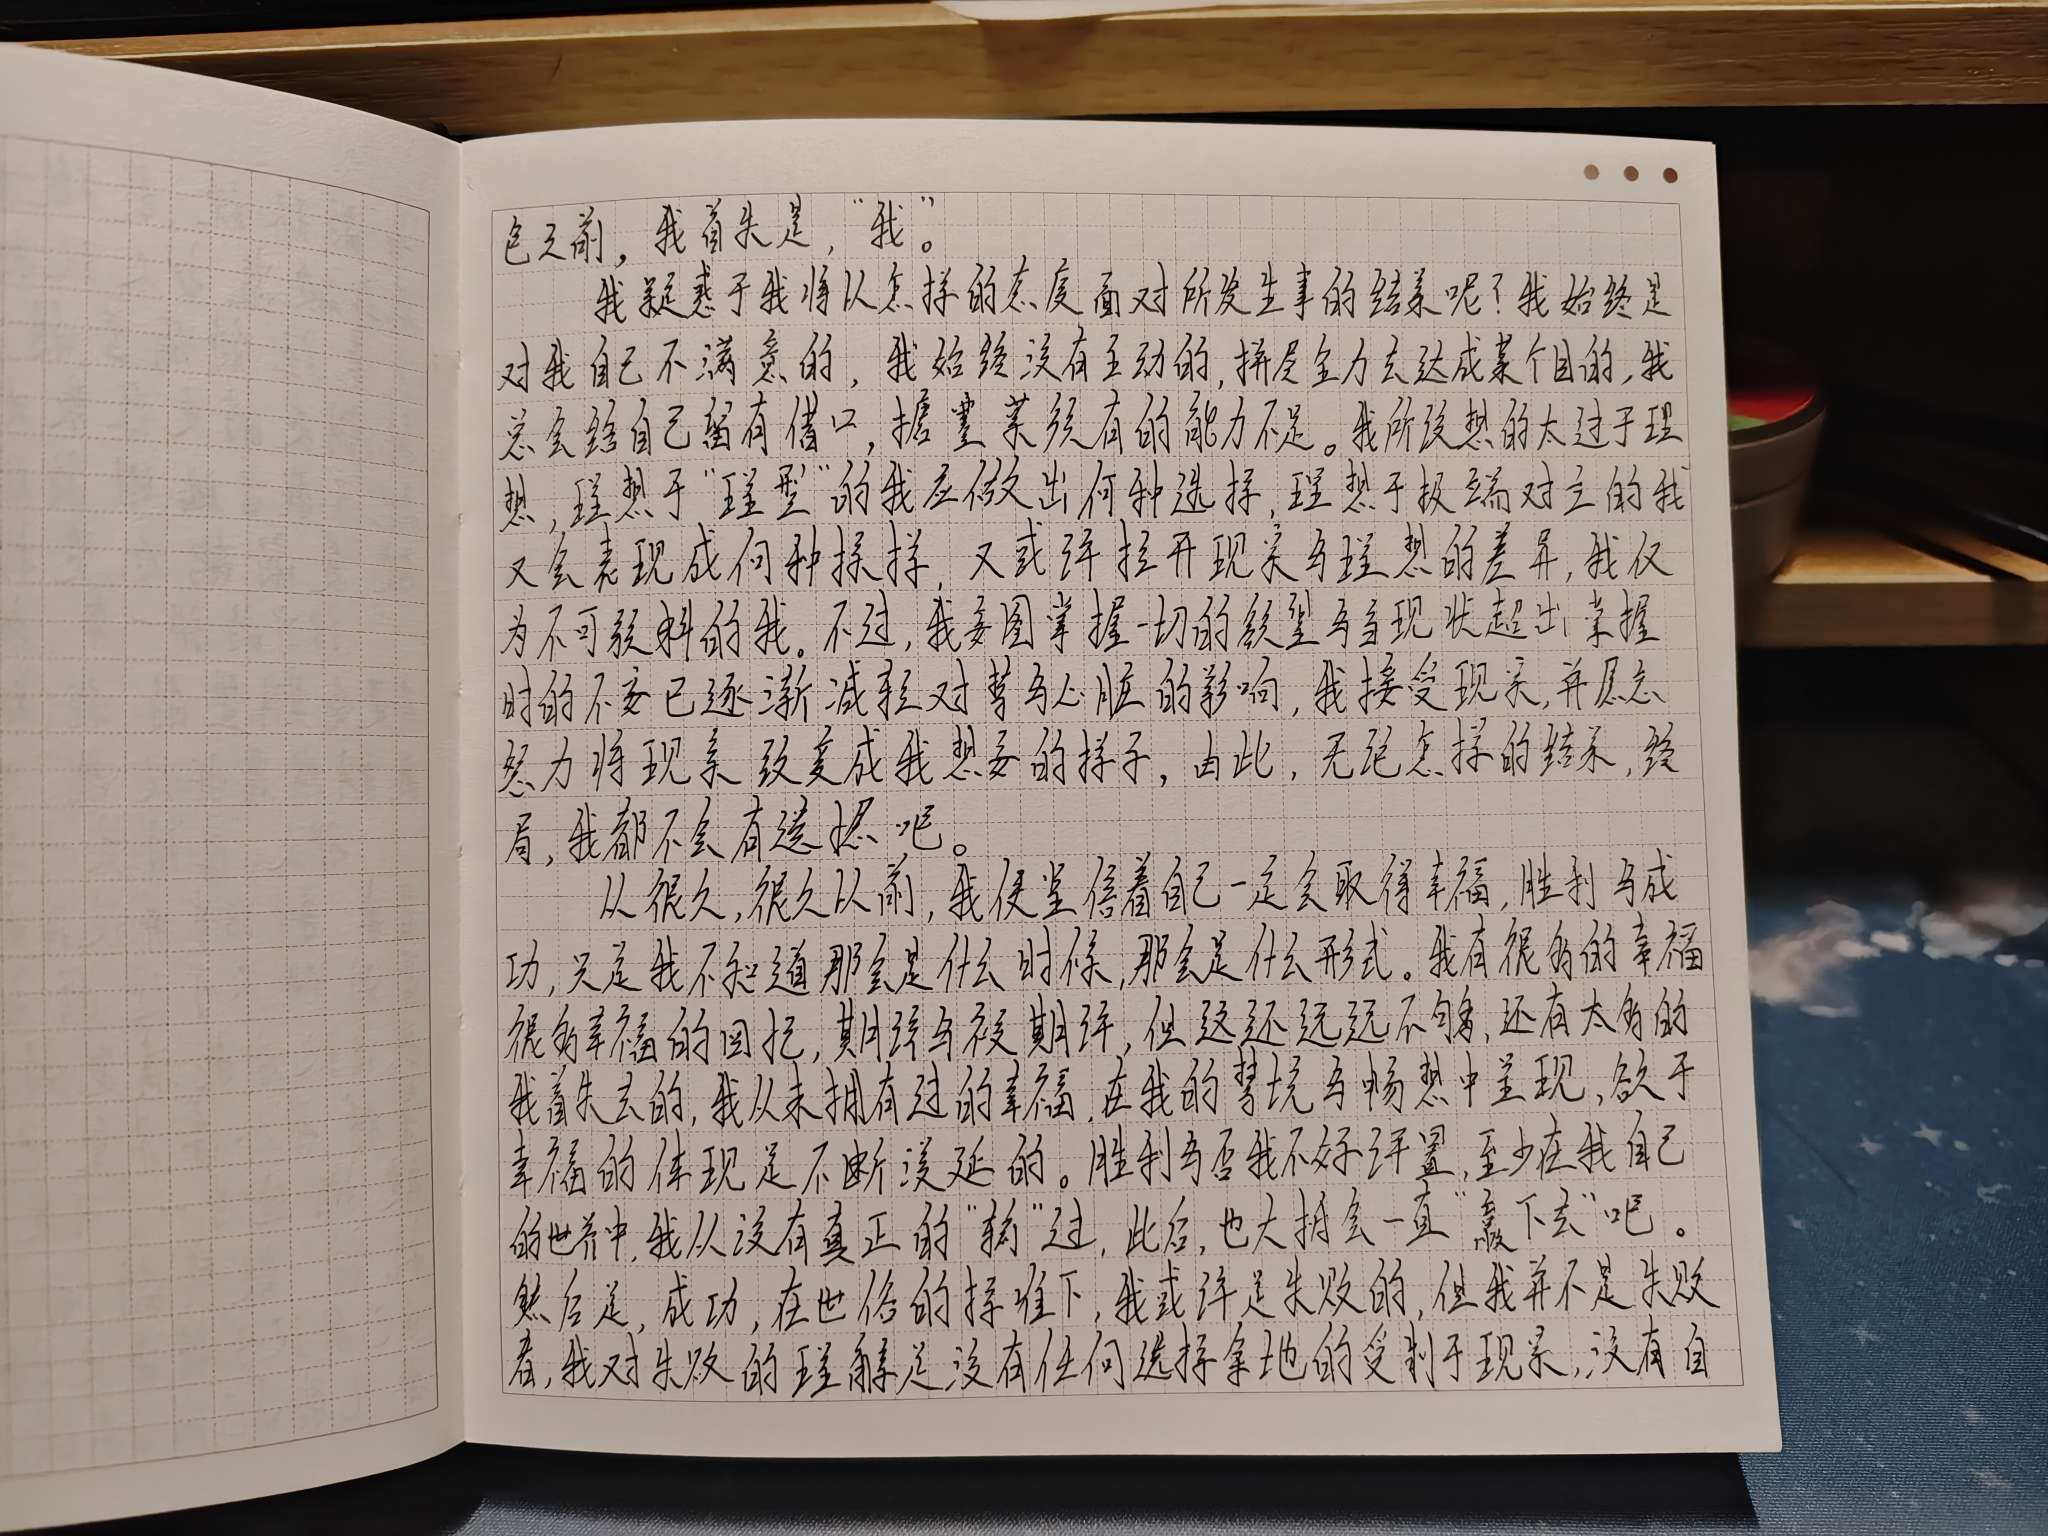 色之前，我首先是，“我”。
我疑惑于我将以怎样的态度面对所发生事的结果呢？我始终是
对我自己不满意的，我始终没有主动的，拼尽全力去达成某个目的，我
总会给自己留有借口，搪塞某须有的能力不足。我所设想的太过于理
想，理想于“理型”的我应做出何种选择，理想于极端对立的我
又会表现成何种模样，又或许拉开现实与理想的差异，我仅
为不可预料的我。不过，我妄图掌握一切的欲望与当现状超出掌握
时的不安已逐渐减轻对梦与心脏的影响，我接受现实，并愿意
努力将现实改变成我想要的样子，由此，无论怎样的结果，终
局，我都不会有遗憾吧。
从很久，很久以前，我便坚信着自己一定会取得幸福，胜利与成
功，只是我不知道那会是什么时候，那会是什么形式。我有很多的幸福
很多幸福的回忆，期许与被期许，但这还远远不够，还有太多的
我曾失去的，我从未拥有过的幸福，在我的梦境与畅想中呈现，欲于
幸福的体现是不断漫延的。胜利与否我不好评置，至少在我自己
的世界中，我从没有真正的“输”过，此后，也大抵会一直“赢下去”吧。
然后是，成功，在世俗的标准下，我或许是失败的，但我并不是失败
者，我对失败的理解是没有任何选择余地的受制于现实，没有自